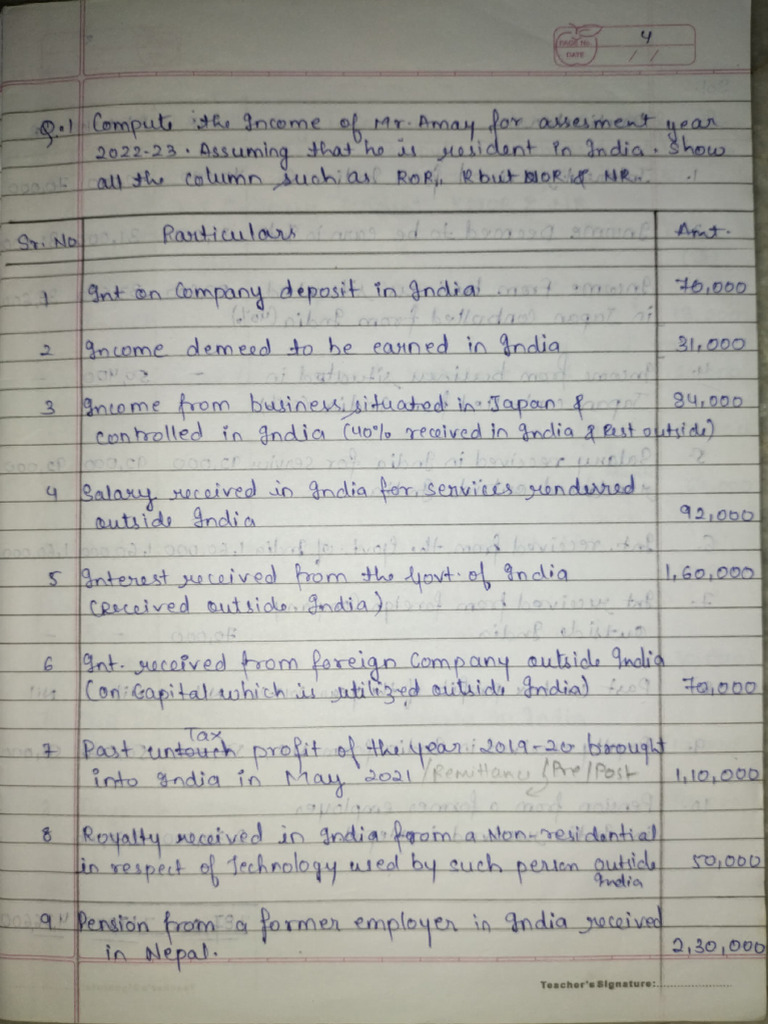 PAGE No. 4
DATE / /
Q.1 Compute the Income of Mr. Amay for assesment year
2022-23. Assuming that he is resident in India. Show
all the column such as ROR, R but NOR & NR.
Sr. No Particulars Amt.
1 Int on Company deposit in India 70,000
2 Income demeed to be earned in India 31,000
3 Income from business situated in Japan & 84,000
controlled in India (40% received in India & Rest outside)
4 Salary received in India for services renderred
outside India 92,000
5 Interest received from the Govt. of India 1,60,000
(received outside India)
6 Int. received from foreign Company outside India
(on Capital which is utilized outside India) 70,000
Tax
7 Past untouch profit of the year 2019-20 brought
into India in May 2021 /Remittance /Pre/Post 1,10,000
8 Royalty received in India from a Non-residential
in respect of Technology used by such person outside 50,000
India
9 Pension from a former employer in India received
in Nepal. 2,30,000
Teacher's Signature: